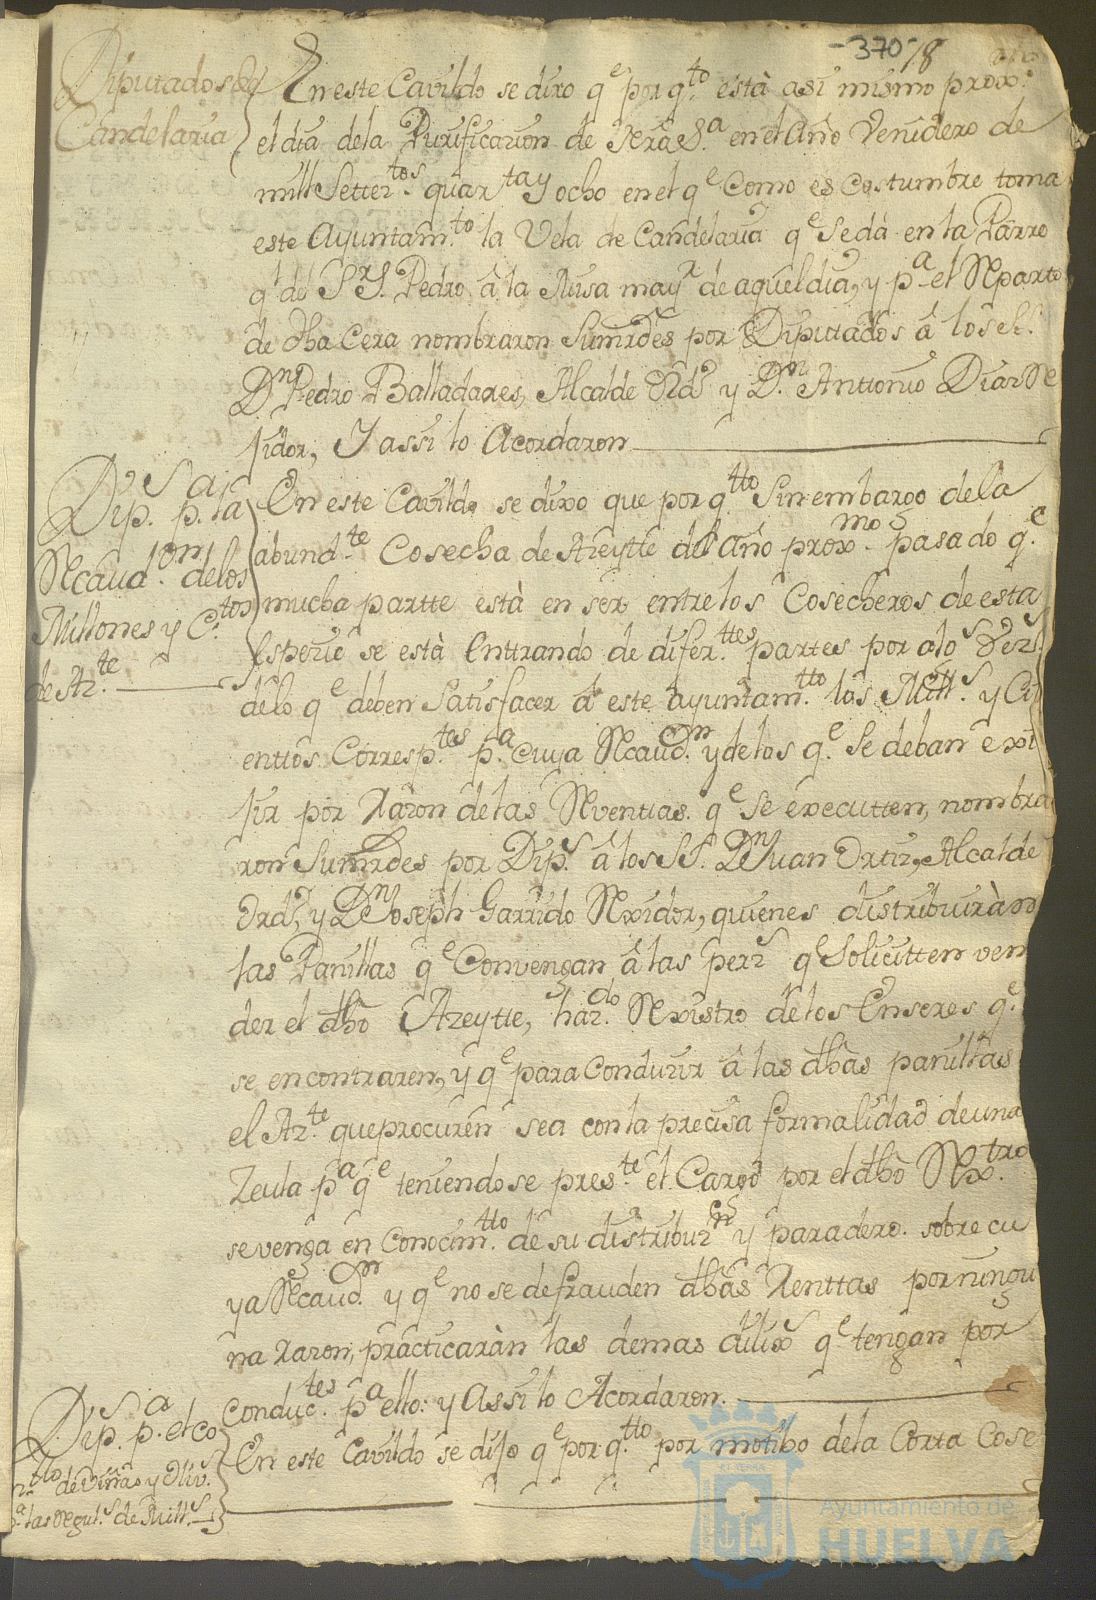 -370-/8
Diputados de
Candelaria
En este Cavildo se dixo q^e por q^to està asi mismo prox.^o
el dia dela Purificazion de Nra S.^a en el Año Venidero de
mill Setter^tos quar^ta y ocho en el q^e Como es Costumbre toma
este Ayuntam.^to la Vela de Candelaria q^e se dà en la Parro
q^l de S.^r S. Pedro â la Misa may^r de aquel dia, y p^a el Reparto
de dha Cera nombraron Sumrdes por Diputados â los S.^s
D.^n Pedro Balladares, Alcalde Ord.^o y D.^n Anttonio Diaz Re
jidor, Y assi lo Acordaron
Dip.^s p.^a la
Recaud.^ion de los
Millones y C.^tos
de Az.^te
En este Cavildo se dixo que por q^tto Sin embargo dela
abund^te Cosecha de Azeytte del año prox^mo pasado q.^e
mucha partte està en ser entre los Cosecheros de esta
Especie se està Enttrando de difer.^ttes partes por alg^s Vez.^s
delo q^e deben Satisfacer â este ayuntam.^tto los Mill.^s y Ci
enttos Corresp.^tes p.^a cuya Recaud.^n y de los q.^e se deban exi
jir por Razon de las Reventtas q^e se executten, nombra
ron Sumrdes por Dip.^s â los SS. D.^n Juan Ortiz, Alcalde
Ord.^o, y D.^n Joseph Garrido Rexidor, quienes distribuiràn
las Panillas q^e Convengan â las pers.^s q^e Solicitten ven
der el dho Azeytte, haz.^do Rexistro de los Enseres q^e
se encontraren, y q^e para Conduzir â las dhas panillas
el Az.^te que procuren sea con la precisa formalidad de una
Zeula p^a q^e teniendose pres.^te el Cargo por el dho Rex.^tro
se venga en Conocim.^tto de su distribuz.^n y paradero. sobre cu
ya Recaud.^n y q^e no se defrauden dhas Renttas por ningu
na razon, practicaràn las demas dilix.^s q^e tengan por
Conduc.^tes p^a ello: y Assi lo Acordaron.
Dip.^s p.^a el co
n.^tto de Viñas y Oliv.^s
p.^a las Regul.^s de Mill.^s
En este Cavildo se dijo q^e por q.^tto por motibo dela Corta Cose
Ayuntamiento de
HUELVA